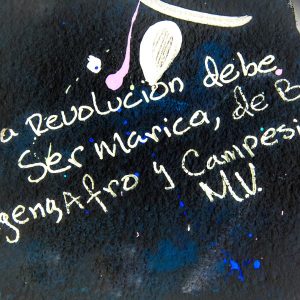 a Revolución debe
Ser Marica, de B
gena, Afro y Campesi
M.V.